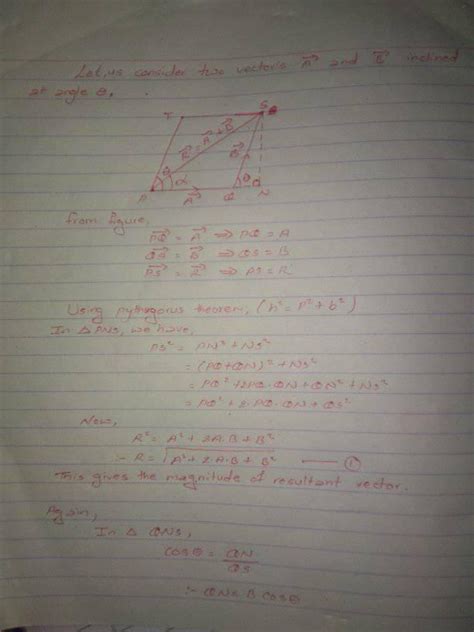 Let us consider two vectors A⃗ and B⃗ inclined
at angle θ.
T S
R⃗ = A⃗ + B⃗ B⃗
θ α θ
P A⃗ Q N
from figure,
PQ⃗ = A⃗ ⇒ PQ = A
QS⃗ = B⃗ ⇒ QS = B
PS⃗ = R⃗ ⇒ PS = R
Using pythagorus theorem, (h² = P² + b²)
In Δ PNS, we have,
PS² = PN² + NS²
= (PQ+QN)² + NS²
= PQ² + 2PQ·QN + QN² + NS²
= PQ² + 2·PQ·QN + QS²
Now,
R² = A² + 2A·B + B²
∴ R = √A² + 2A·B + B² — ①
This gives the magnitude of resultant vector.
Again,
In Δ QNS,
cosθ = QN/QS
∴ QN = B cosθ